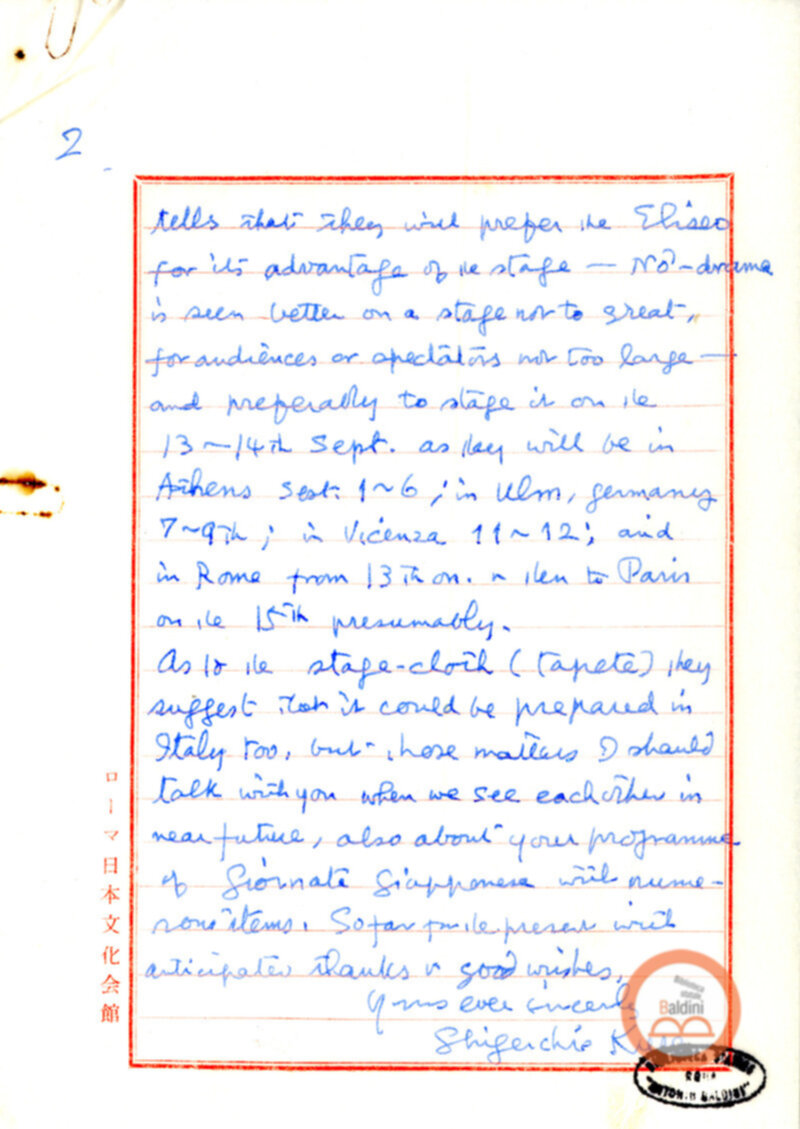 2
tells that they will prefer the Eliseo
for its advantage of the stage — Nō-drama
is seen better on a stage not to great,
for audiences or spectators not too large —
and preferably to stage it on the
13~14th Sept. as they will be in
Athens Sept. 1~6; in Ulm, Germany
7~9th; in Vicenza 11~12; and
in Rome from 13th on. & then to Paris
on the 15th presumably.
As to the stage-cloth (tapete) they
suggest that it could be prepared in
Italy too, but those matters I should
talk with you when we see each other in
near future, also about your programme
of Giornata Giapponese with nume-
rous items. So far for the present with
anticipated thanks & good wishes,
Yours ever sincerely
Shigeichi
ローマ日本文化会館
Biblioteca
statale
Baldini
ROMA
"ANTONIO BALDINI"